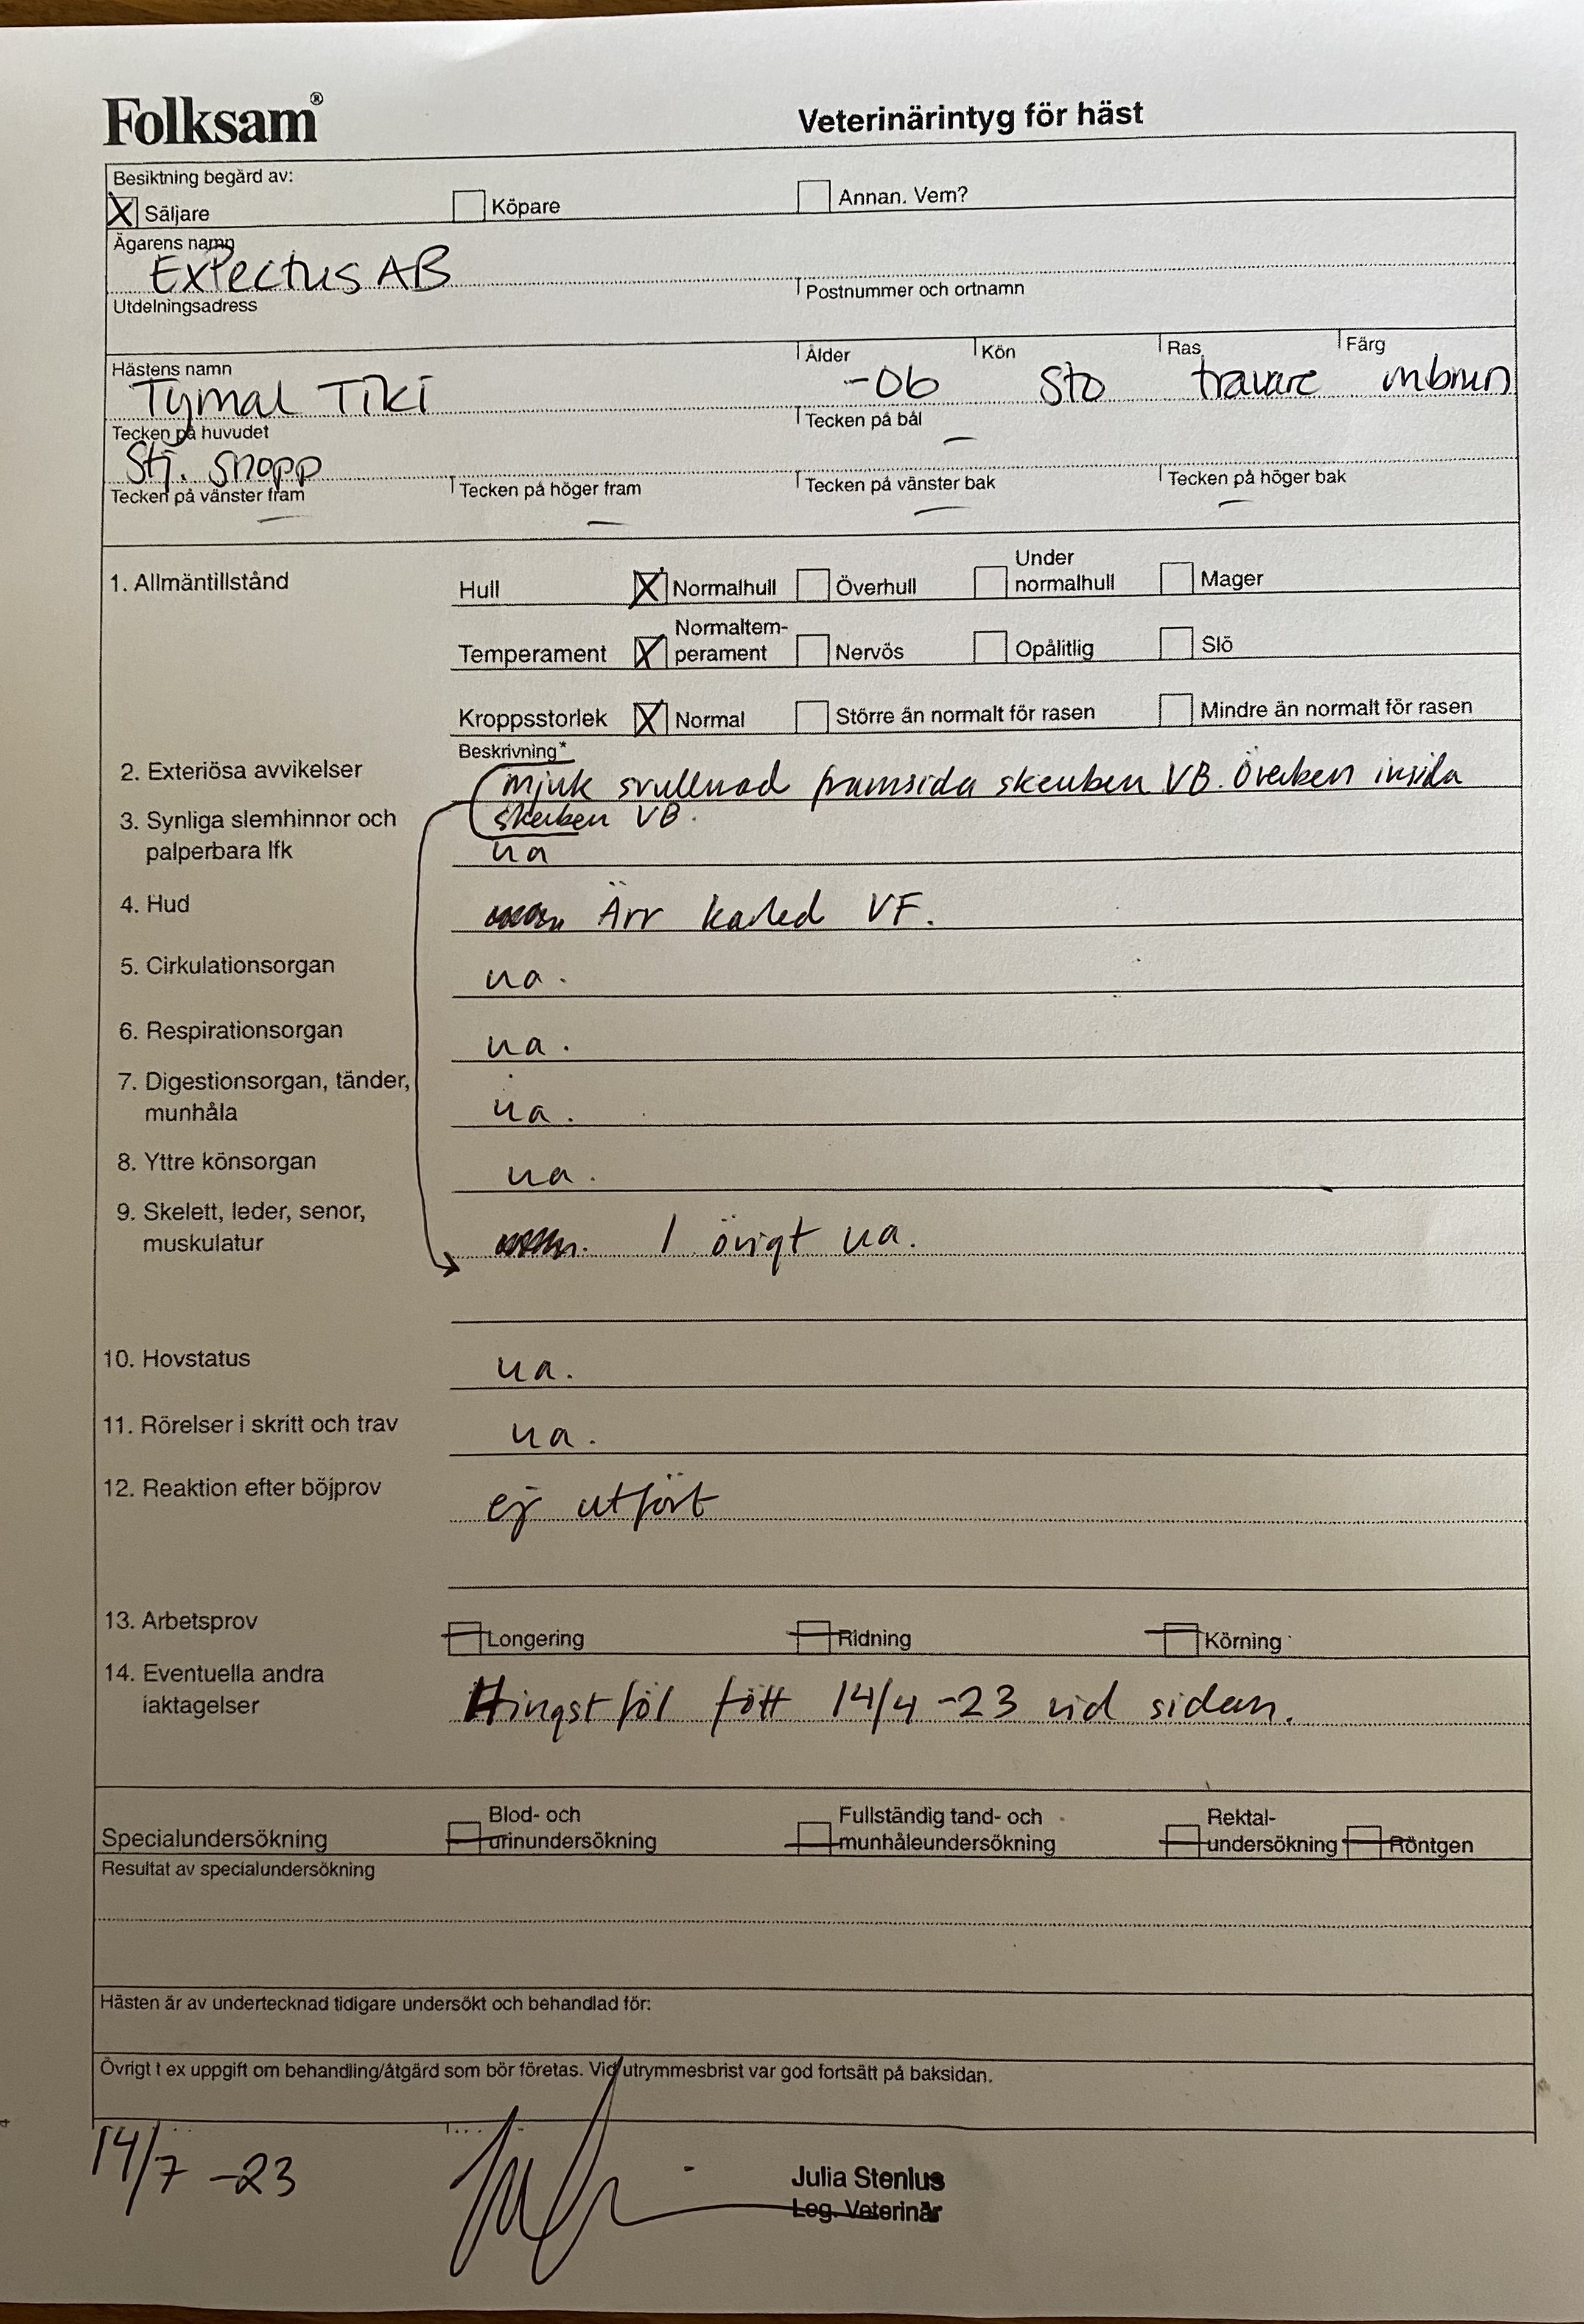 Folksam®
Veterinärintyg för häst
Besiktning begärd av:
X Säljare Köpare Annan. Vem?
Ägarens namn
Expectus AB
Utdelningsadress Postnummer och ortnamn
Hästens namn Ålder Kön Ras Färg
Tymal Tiki -06 Sto travare mbrun
Tecken på huvudet Tecken på bål
Stj. snopp —
Tecken på vänster fram Tecken på höger fram Tecken på vänster bak Tecken på höger bak
— — — —
1. Allmäntillstånd Hull X Normalhull Överhull Under normalhull Mager
Temperament X Normaltem-
perament Nervös Opålitlig Slö
Kroppsstorlek X Normal Större än normalt för rasen Mindre än normalt för rasen
Beskrivning*
2. Exteriösa avvikelser mjuk svullnad framsida skenben VB. Överben insida
skenben VB.
3. Synliga slemhinnor och
palperbara lfk ua
4. Hud Ärr karled VF.
5. Cirkulationsorgan ua.
6. Respirationsorgan ua.
7. Digestionsorgan, tänder,
munhåla ua.
8. Yttre könsorgan ua.
9. Skelett, leder, senor,
muskulatur I övrigt ua.
10. Hovstatus ua.
11. Rörelser i skritt och trav ua.
12. Reaktion efter böjprov ej utfört
13. Arbetsprov Longering Ridning Körning
14. Eventuella andra
iaktagelser Hingstföl fött 14/4 -23 vid sidan.
Specialundersökning Blod- och
urinundersökning Fullständig tand- och
munhåleundersökning Rektal-
undersökning Röntgen
Resultat av specialundersökning
Hästen är av undertecknad tidigare undersökt och behandlad för:
Övrigt t ex uppgift om behandling/åtgärd som bör företas. Vid utrymmesbrist var god fortsätt på baksidan.
14/7 -23
Julia Stenlus
Leg. Veterinär